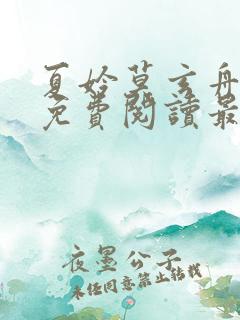 夏姈莫玄舟
免費閱讀最
夜墨公子
未经同意禁止转载